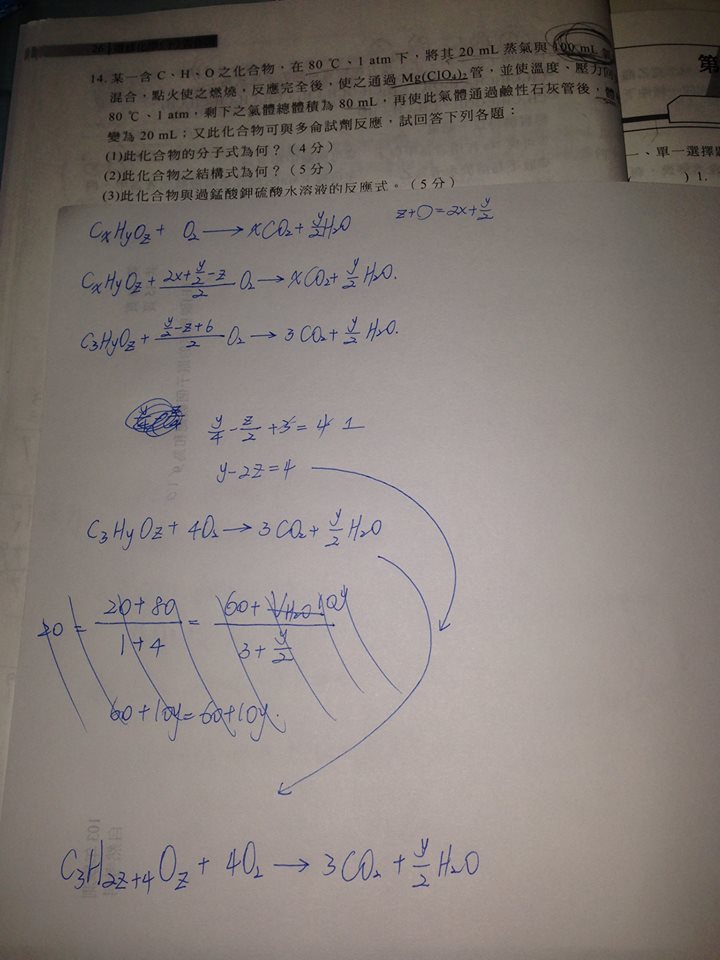 14. 某一含 C、H、O 之化合物，在 80 ℃、1 atm 下，將其 20 mL 蒸氣與 100 mL 氧
混合，點火使之燃燒，反應完全後，使之通過 Mg(ClO₄)₂ 管，並使溫度、壓力回
80 ℃、1 atm，剩下之氣體總體積為 80 mL，再使此氣體通過鹼性石灰管後，體
變為 20 mL；又此化合物可與多侖試劑反應，試回答下列各題：
(1)此化合物的分子式為何？（4 分）
(2)此化合物之結構式為何？（5 分）
(3)此化合物與過錳酸鉀硫酸水溶液的反應式。（5 分）
第
一、單一選擇題
) 1.
CxHyOz + O₂ → xCO₂ + y/2 H₂O
z+O=2x+y/2
CxHyOz + (2x+y/2-z)/2 O₂ → xCO₂ + y/2 H₂O.
C₃HyOz + (y/2-z+6)/2 O₂ → 3CO₂ + y/2 H₂O.
y/4 - z/2 + 3 = 4 1
y-2z=4
C₃HyOz + 4O₂ → 3CO₂ + y/2 H₂O
20 = (20+80)/(1+4) = (60+VH₂O 10y)/(3+y/2)
60+10y=60+10y.
C₃H2z+4Oz + 4O₂ → 3CO₂ + y/2 H₂O